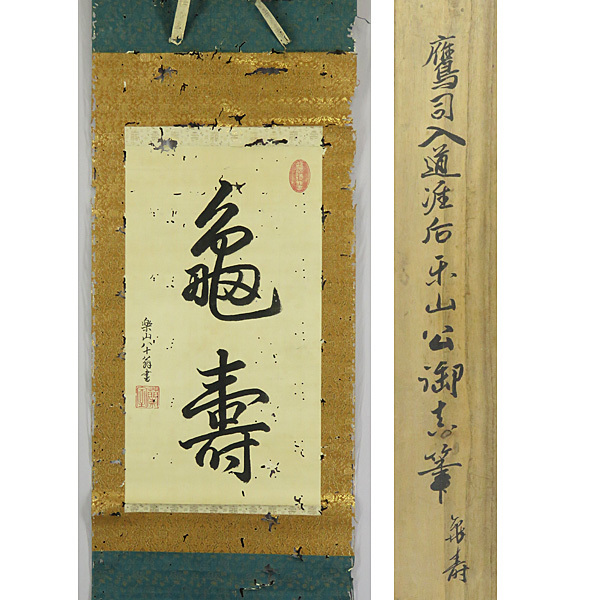 龜壽
樂山八十翁書
鷹司入道准后樂山公御真筆
龜寿